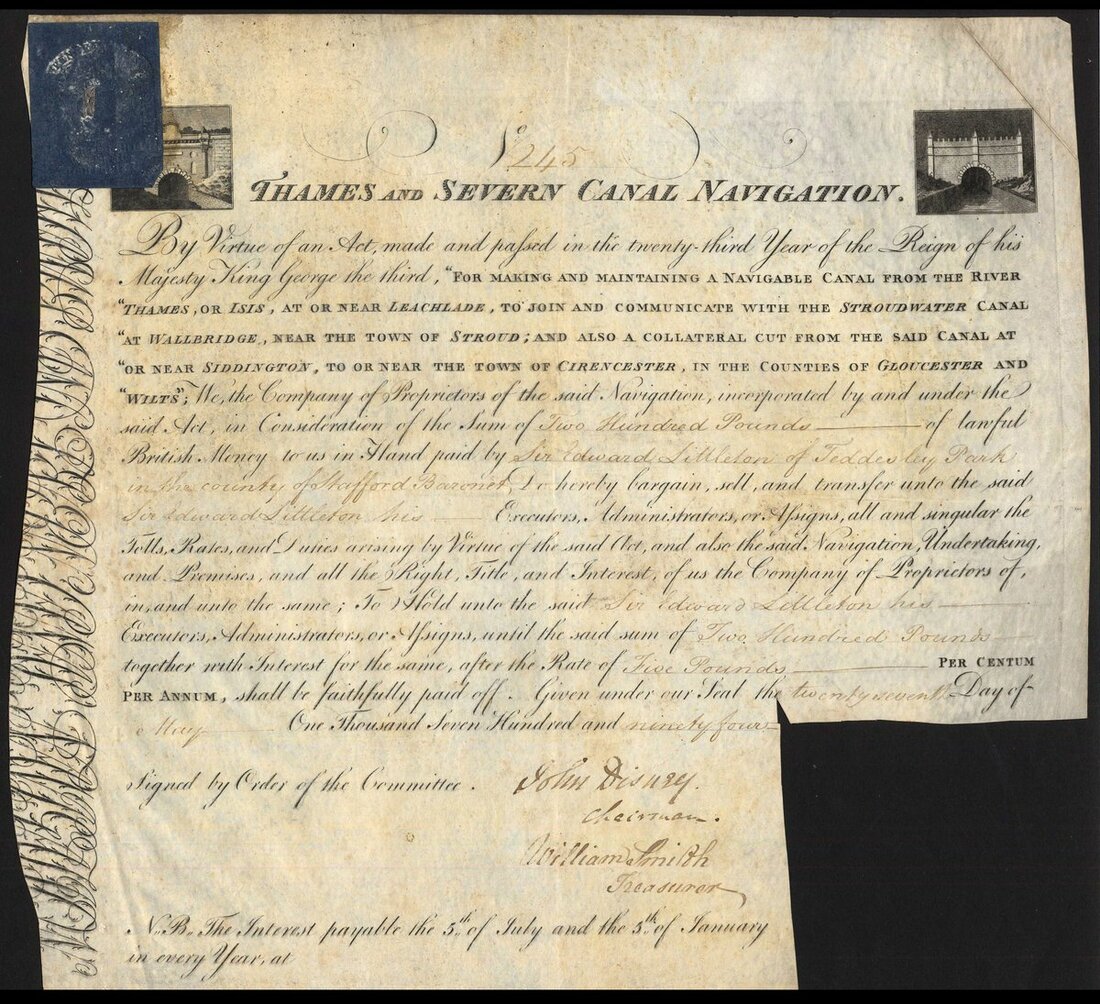 No 245
THAMES AND SEVERN CANAL NAVIGATION.
By Virtue of an Act, made and paſsed in the twenty-third Year of the Reign of his
Majesty King George the third, "FOR MAKING AND MAINTAINING A NAVIGABLE CANAL FROM THE RIVER
"THAMES, OR ISIS, AT OR NEAR LEACHLADE, TO JOIN AND COMMUNICATE WITH THE STROUDWATER CANAL
"AT WALLBRIDGE, NEAR THE TOWN OF STROUD; AND ALSO A COLLATERAL CUT FROM THE SAID CANAL AT
"OR NEAR SIDDINGTON, TO OR NEAR THE TOWN OF CIRENCESTER, IN THE COUNTIES OF GLOUCESTER AND
"WILTS"; We, the Company of Proprietors of the said Navigation, incorporated by and under the
said Act, in Consideration of the Sum of Two Hundred Pounds of lawful
British Money to us in Hand paid by Sir Edward Littleton of Teddesley Park
in the county of Stafford Baronet, Do hereby bargain, sell, and transfer unto the said
Sir Edward Littleton his Executors, Administrators, or Aſsigns, all and singular the
Tolls, Rates, and Duties arising by Virtue of the said Act, and also the said Navigation, Undertaking,
and Premises, and all the Right, Title, and Interest, of us the Company of Proprietors of,
in, and unto the same; To Hold unto the said Sir Edward Littleton his
Executors, Administrators, or Aſsigns, until the said sum of Two Hundred Pounds
together with Interest for the same, after the Rate of Five Pounds PER CENTUM
PER ANNUM, shall be faithfully paid off. Given under our Seal the twenty seventh Day of
May One Thousand Seven Hundred and ninety four
Signed by Order of the Committee.
John Disney.
Chairman.
William Smith
Treasurer
N.B. The Interest payable the 5th of July and the 5th of January
in every Year, at